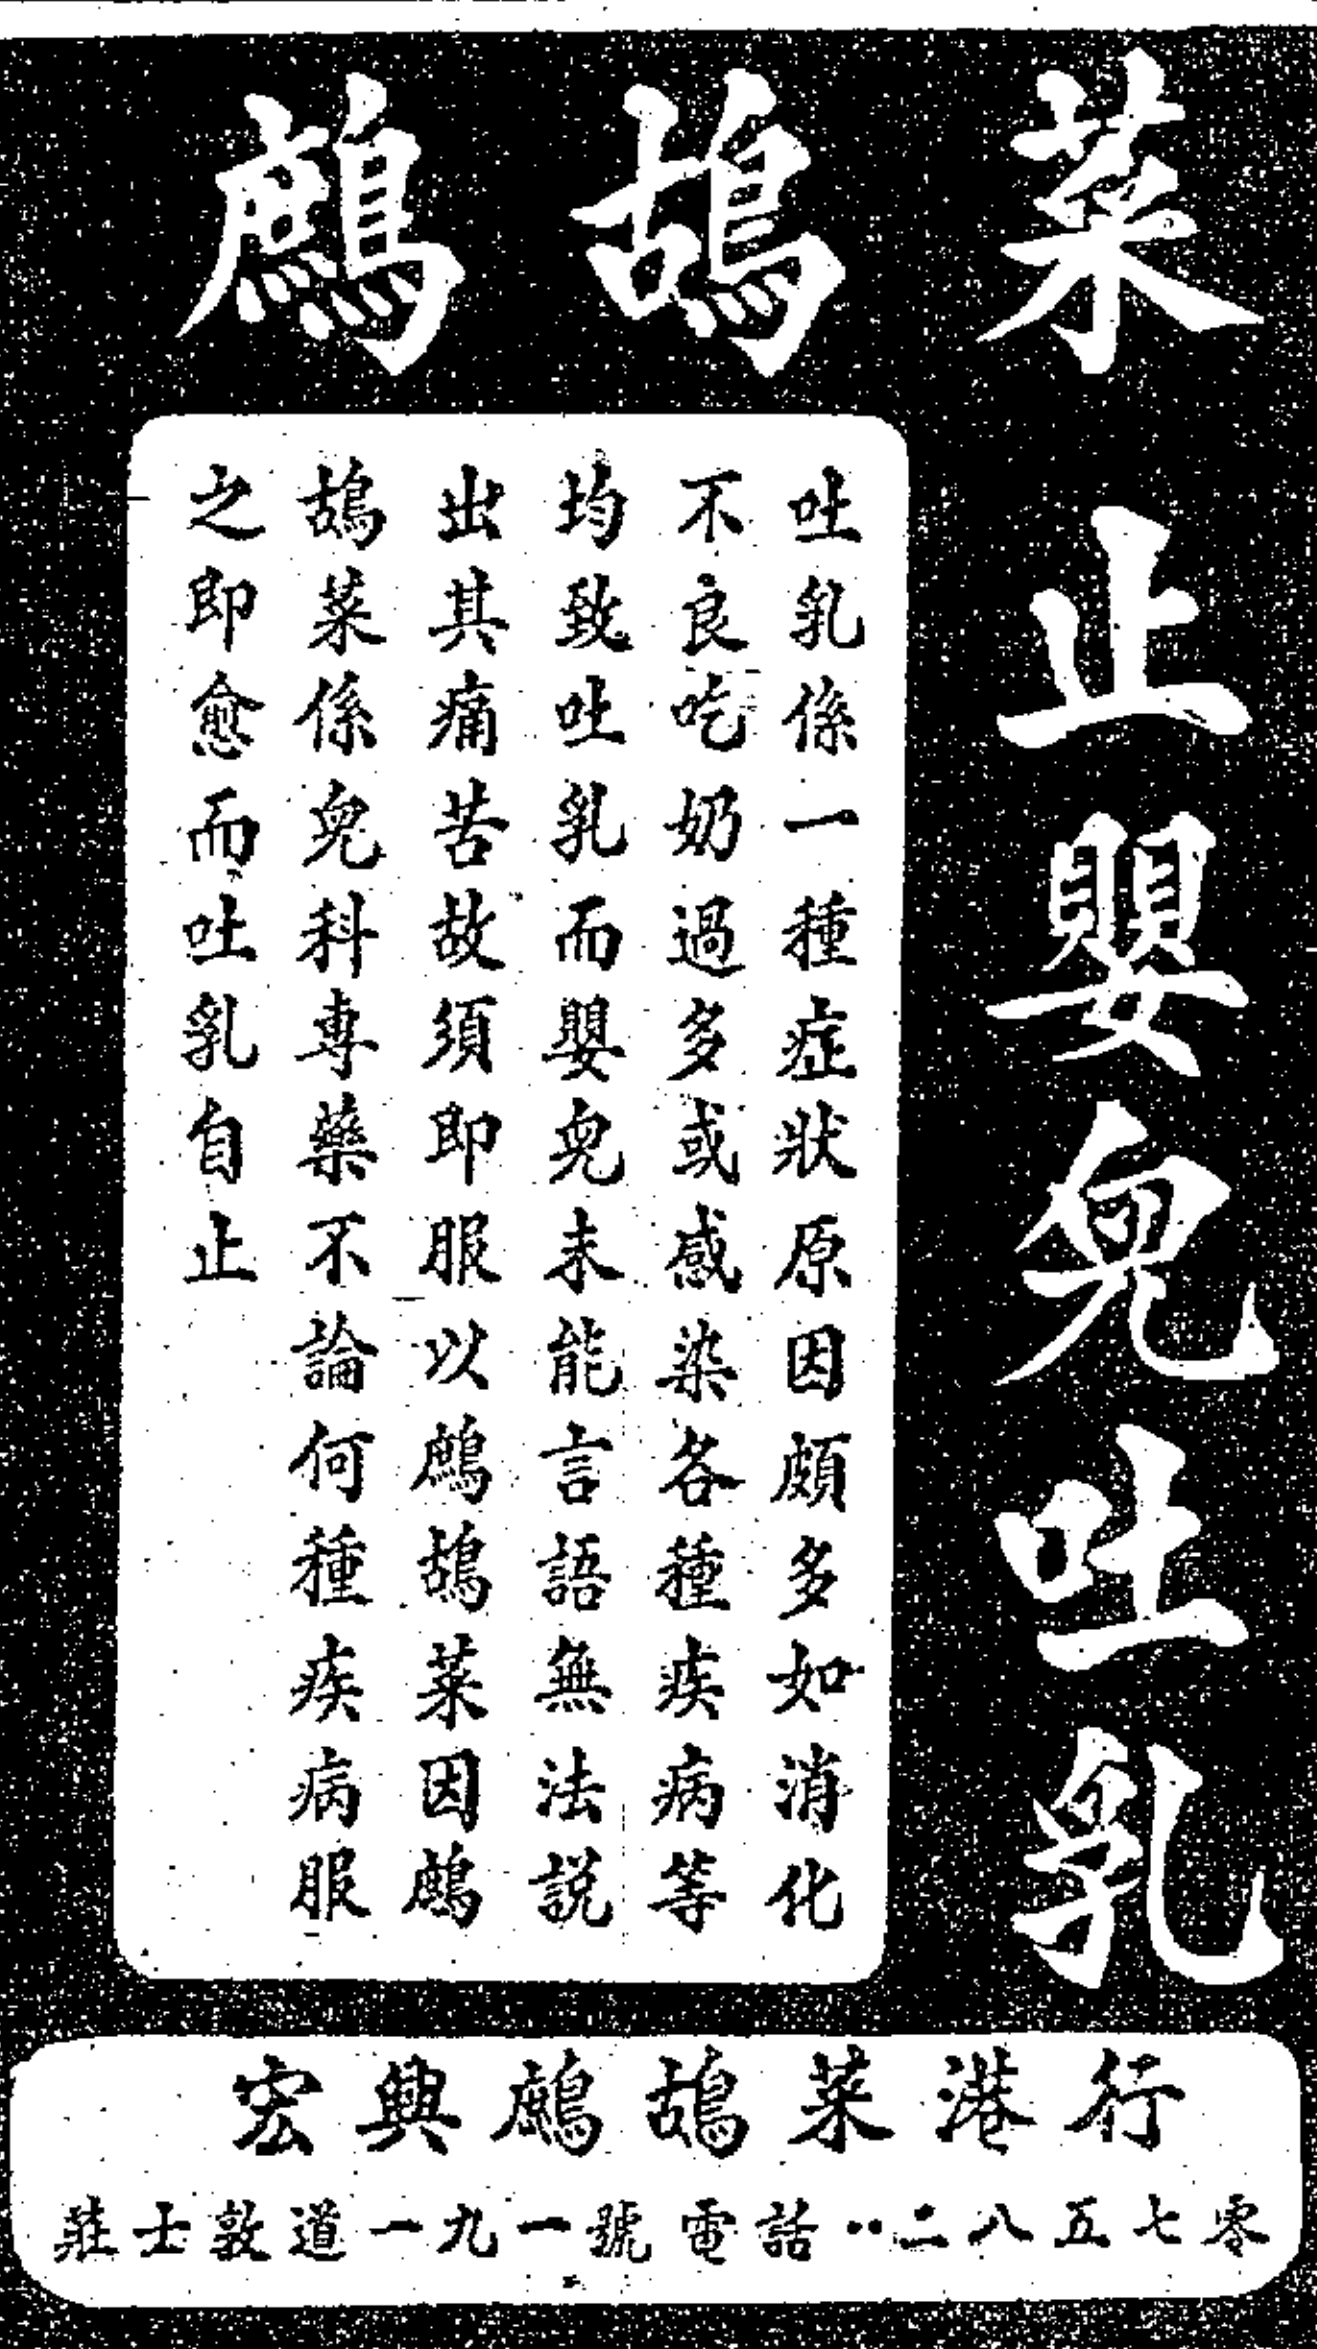 鷓鴣菜
止嬰兒吐乳
吐乳係一種症狀原因頗多如消化
不良吃奶過多或感染各種疾病等
均致吐乳而嬰兒未能言語無法説
出其痛苦故須即服以鷓鴣菜因鷓
鴣菜係兒科專藥不論何種疾病服
之即愈而吐乳自止
宏興鷓鴣菜港行
莊士敦道一九一號電話：二八五七零